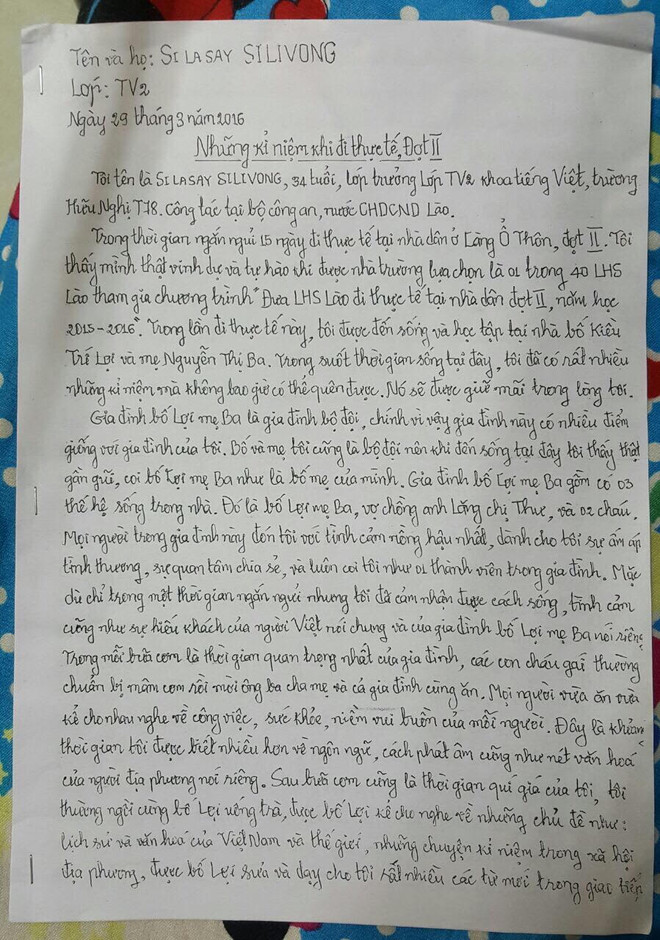 Tên và họ: SILASAY SILIVONG
Lớp: TV2
Ngày 29 tháng 3 năm 2016
Những kỉ niệm khi đi thực tế, Đợt II
Tôi tên là SILASAY SILIVONG, 34 tuổi, lớp trưởng Lớp TV2 khoa tiếng Việt, trường
Hữu Nghị T78. Công tác tại bộ công an, nước CHDCND Lào.
Trong thời gian ngắn ngủi 15 ngày đi thực tế tại nhà dân ở Làng Ổ Thôn, đợt II. Tôi
thấy mình thật vinh dự và tự hào khi được nhà trường lựa chọn là 01 trong 40 LHS
Lào tham gia chương trình "Đưa LHS Lào đi thực tế tại nhà dân đợt II, năm học
2015-2016". Trong lần đi thực tế này, tôi được đến sống và học tập tại nhà bố Kiều
Trí Lợi và mẹ Nguyễn Thị Ba. Trong suốt thời gian sống tại đây, tôi đã có rất nhiều
những kỉ niệm mà không bao giờ có thể quên được. Nó sẽ được giữ mãi trong lòng tôi.
Gia đình bố Lợi mẹ Ba là gia đình bộ đội, chính vì vậy gia đình này có nhiều điểm
giống với gia đình của tôi. Bố và mẹ tôi cũng là bộ đội nên khi đến sống tại đây tôi thấy thật
gần gũi, coi bố Lợi mẹ Ba như là bố mẹ của mình. Gia đình bố Lợi mẹ Ba gồm có 03
thế hệ sống trong nhà. Đó là bố Lợi mẹ Ba, vợ chồng anh Lăng chị Thư, và 02 cháu.
Mọi người trong gia đình này đón tôi với tình cảm nồng hậu nhất, dành cho tôi sự ấm áp
tình thương, sự quan tâm chia sẻ, và luôn coi tôi như 01 thành viên trong gia đình. Mặc
dù chỉ trong một thời gian ngắn ngủi nhưng tôi đã cảm nhận được cách sống, tình cảm
cũng như sự hiếu khách của người Việt nói chung và của gia đình bố Lợi mẹ Ba nói riêng.
Trong mỗi bữa cơm là thời gian quan trọng nhất của gia đình, các con cháu gái thường
chuẩn bị mâm cơm rồi mời ông bà cha mẹ và cả gia đình cùng ăn. Mọi người vừa ăn vừa
kể cho nhau nghe về công việc, sức khỏe, niềm vui buồn của mỗi người. Đây là khoản
thời gian tôi được biết nhiều hơn về ngôn ngữ, cách phát âm cũng như nét văn hoá
của người địa phương nói riêng. Sau bữa cơm cũng là thời gian quí giá của tôi, tôi
thường ngồi cùng bố Lợi uống trà, được bố Lợi kể cho nghe về những chủ đề như:
lịch sử và văn hoá của Việt Nam và thế giới, những chuyện kỉ niệm trong xã hội
địa phương, được bố Lợi sửa và dạy cho tôi rất nhiều các từ mới trong giao tiếp